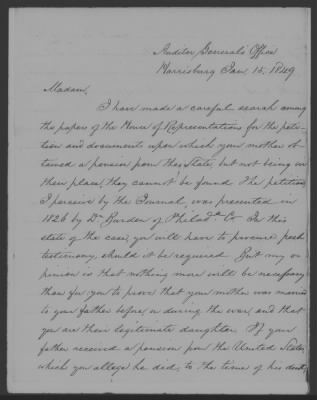 Auditor General's Office
Harrisburg Jan. 15. 1849
Madam,
I have made a careful search among
the papers of the House of Representatives for the peti-
tion and document upon which your mother ob-
tained a pension from this State, but not being in
their place, they cannot be found. The petition,
I perceive by the Journal, was presented in
1826 by Dr Burden of Philada Co. In this
state of the case, you will have to procure fresh
testimony, should it be required. But my o-
pinion is that nothing more will be necessary
than for you to prove that your mother was married
to your father before, or during the war, and that
you are their legitimate daughter. If your
father received a pension from the United States,
which you allege he did, to the time of his death,